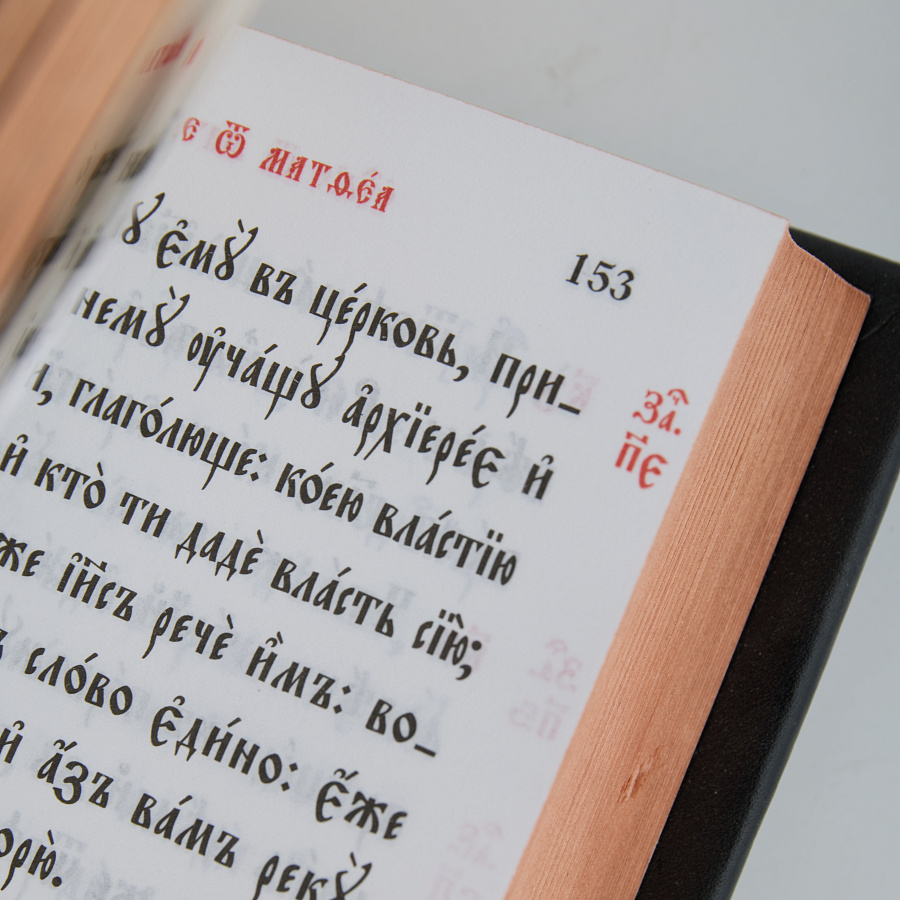 ѿ матѳе́а
153
є҆мꙋ̀ въ це́рковь, при_
немꙋ̀ ᲂу҆ча́щꙋ а҆рхїере́є и҆
за҃.
п҃є
глаго́люще: ко́ею вла́стїю
и҆ кто̀ ти дадѐ вла́сть сїю̀;
же і҆и҃съ речѐ и҆̀мъ: во_
сло́во є҆ди́но: є҆́же
и҆ а҆́зъ ва́мъ рекꙋ̀